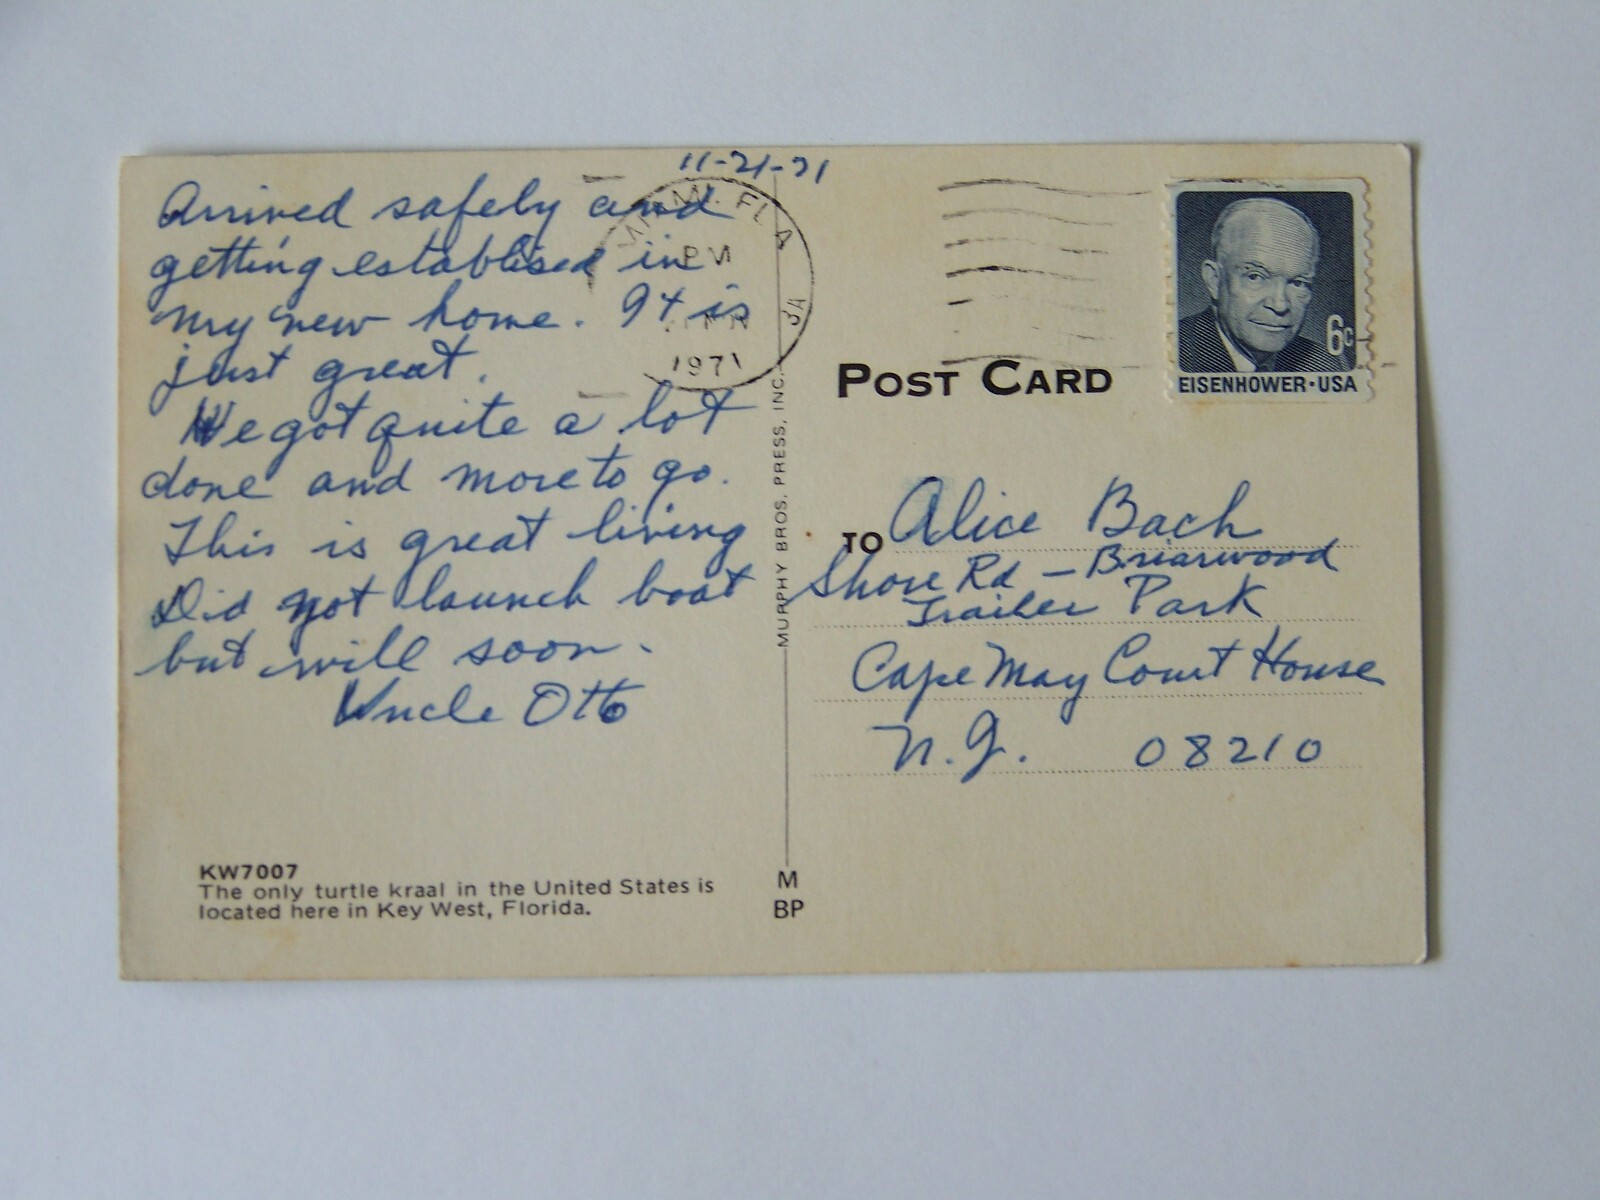 11-21-71
Arrived safely and
getting establised in
my new home. It is
just great.
We got quite a lot
done and more to go.
This is great living
Did not launch boat
but will soon.
Uncle Otto
KW7007
The only turtle kraal in the United States is
located here in Key West, Florida.
MIAMI, FLA
PM
1971
MURPHY BROS. PRESS, INC.
M
BP
POST CARD
6c
EISENHOWER·USA
TO Alice Bach
Shore Rd - Briarwood
Trailer Park
Cape May Court House
N.J. 08210